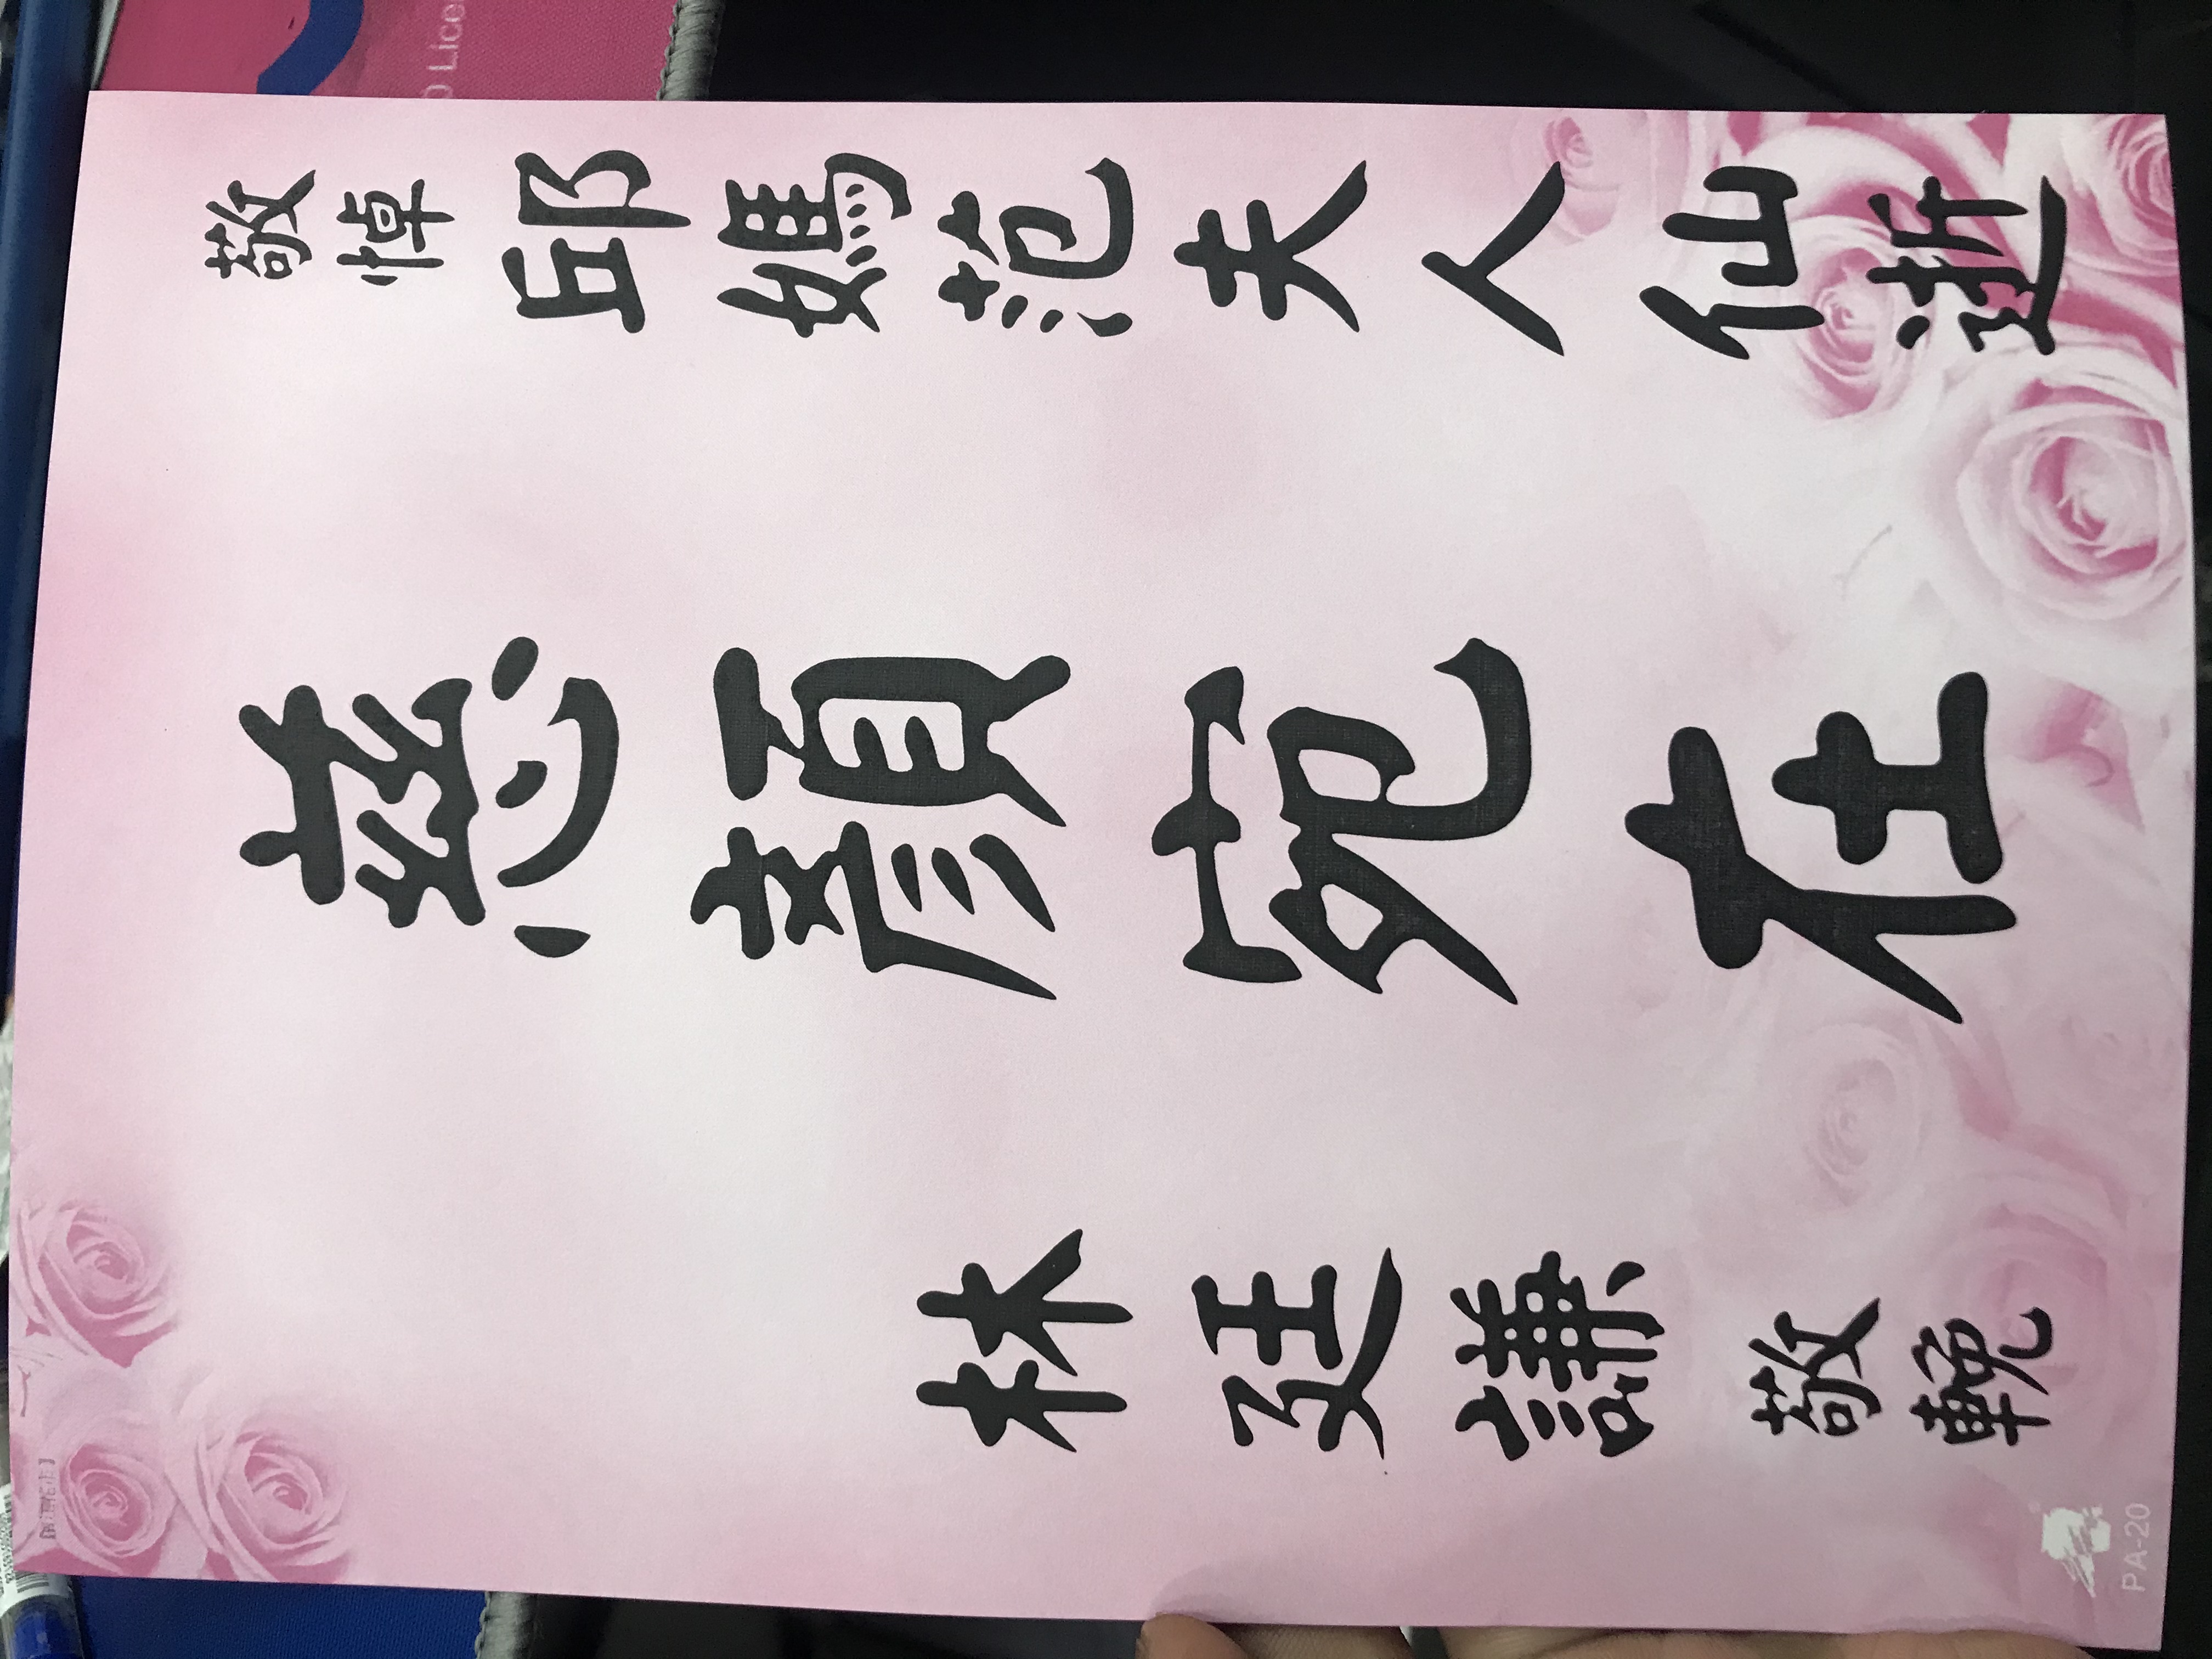 敬悼 邱媽范夫人仙逝
慈顏宛在
林廷謙 敬輓
PA-20